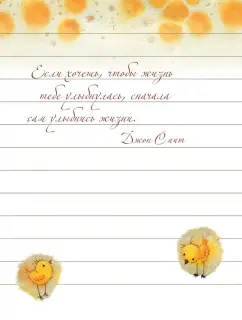 Если хочешь, чтобы жизнь
тебе улыбнулась, сначала
сам улыбнись жизни.
Джон Смит